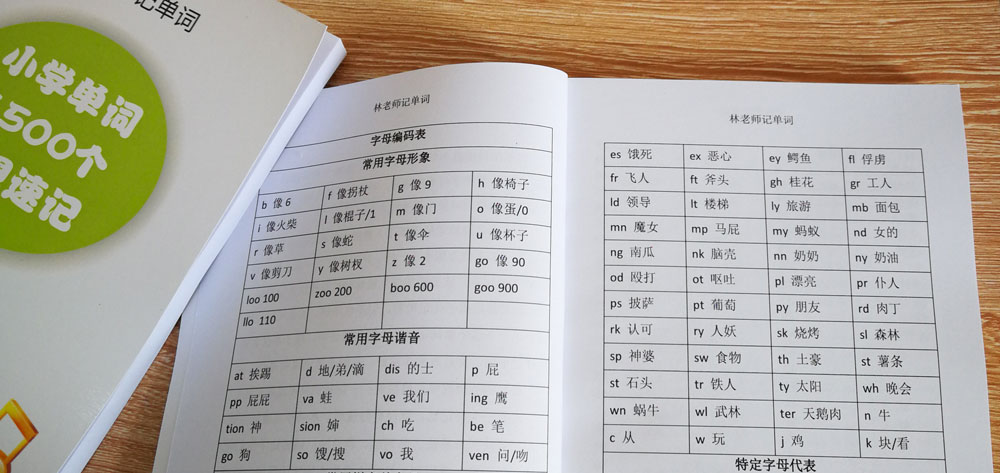 记单词
小学单词
500个
速记
林老师记单词
字母编码表
常用字母形象
b 像6 f 像拐杖 g 像9 h 像椅子
i 像火柴 l 像棍子/1 m 像门 o 像蛋/0
r 像草 s 像蛇 t 像伞 u 像杯子
v 像剪刀 y 像树杈 z 像2 go 像90
loo 100 zoo 200 boo 600 goo 900
llo 110
常用字母谐音
at 挨踢 d 地/弟/滴 dis 的士 p 屁
pp 屁屁 va 蛙 ve 我们 ing 鹰
tion 神 sion 婶 ch 吃 be 笔
go 狗 so 馊/搜 vo 我 ven 问/吻
林老师记单词
es 饿死 ex 恶心 ey 鳄鱼 fl 俘虏
fr 飞人 ft 斧头 gh 桂花 gr 工人
ld 领导 lt 楼梯 ly 旅游 mb 面包
mn 魔女 mp 马屁 my 蚂蚁 nd 女的
ng 南瓜 nk 脑壳 nn 奶奶 ny 奶油
od 殴打 ot 呕吐 pl 漂亮 pr 仆人
ps 披萨 pt 葡萄 py 朋友 rd 肉丁
rk 认可 ry 人妖 sk 烧烤 sl 森林
sp 神婆 sw 食物 th 土豪 st 薯条
st 石头 tr 铁人 ty 太阳 wh 晚会
wn 蜗牛 wl 武林 ter 天鹅肉 n 牛
c 从 w 玩 j 鸡 k 块/看
特定字母代表